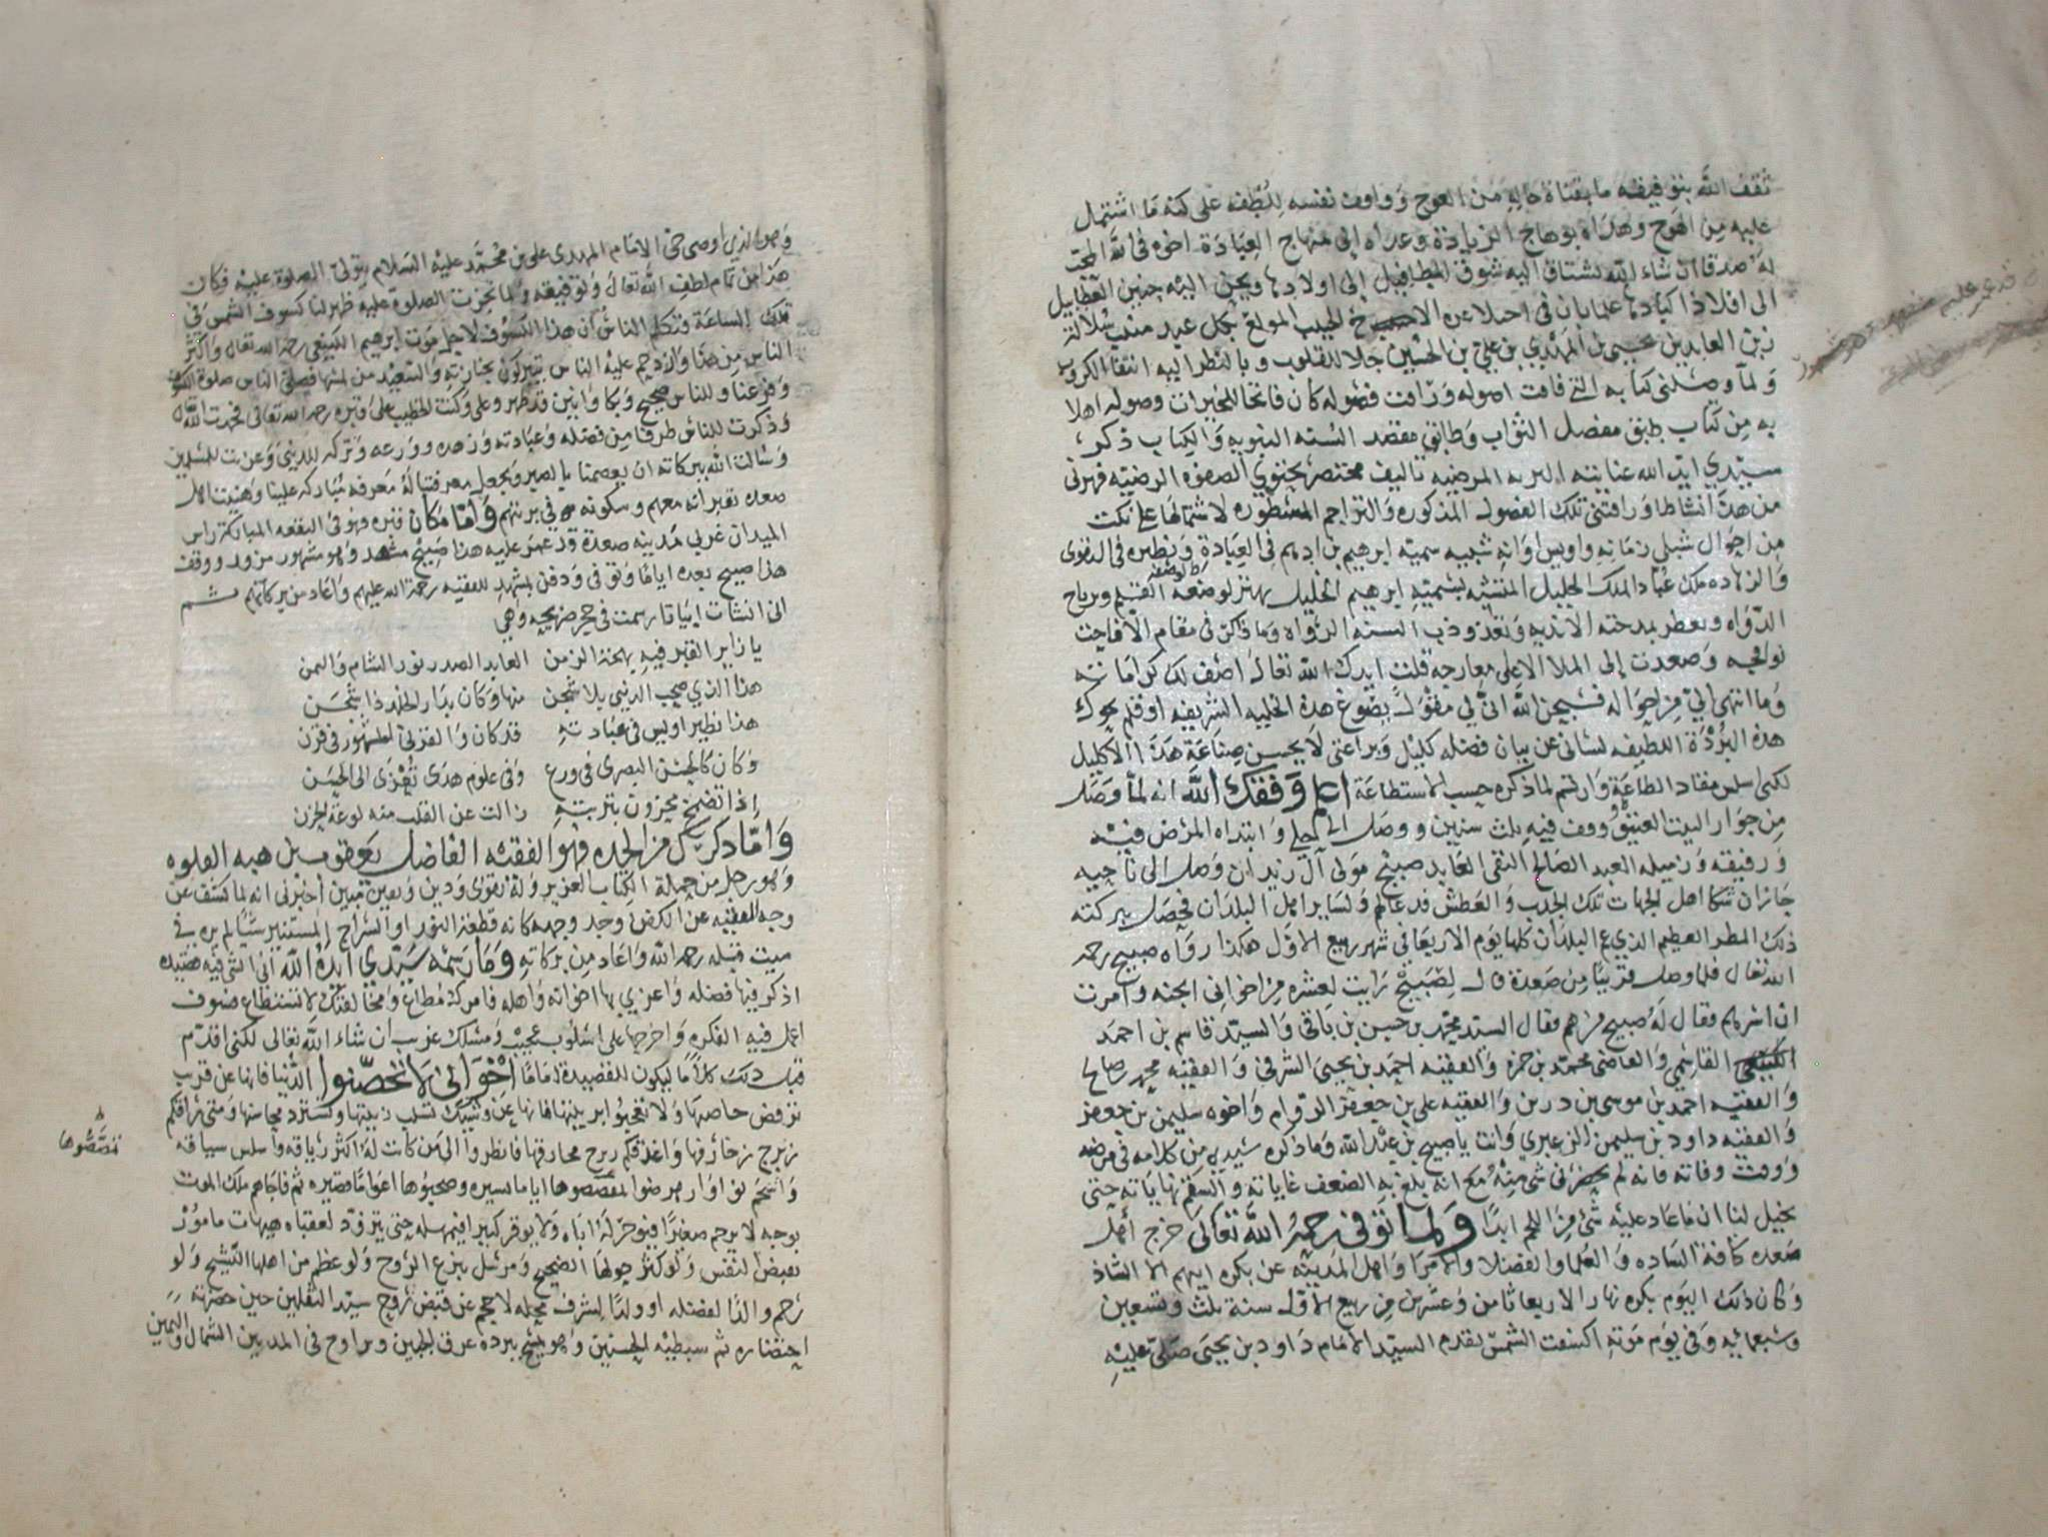 ثقف الله بتوفيقه ما بقناة حاله من العوج وواقف نفسه بلطفه على كنه ما اشتمل
عليه من الهوج وهداه بوهاج الزيادة وعداه إلى منهاج العبادة اخوه في الله المحب
له صدقا ان شاء الله المشتاق اليه شوق المطافيل إلى اولادها ويحن اليه حنين العطابيل
الى افلاذ اكبادها
زين العابدين يحيى بن المهدي بن علي بن الحسين جلا للقلوب وبالنظر اليه انتفا الكروب
ولما وصلني كتابه التي قامت اصوله وزافت فصوله كان فاتحا للخيرات وصوله اهلا
به من كتاب طبق مفصل الثواب وطابق مقصد السنه النبويه والكتاب ذكر
سيدي ايد الله عنايته البريه المرضيه تاليف مختصر يحتوي الصفوه الرضيه فهزني
من هذا نشاطا ورافتني تلك الفصول المذكوره والتراجم المسطوره لاشتمالها على نكت
من احوال شبلي زمانه واويس اوانه شبيه سميه ابرهيم بن ادهم في العبادة ونظيره في التقوى
والزهاده ملك عباد الملك الجليل المتشبه بسميه ابرهيم الخليل يهتز لوصفه القلم ورياح
الدواه وتعطر بمدحته الانديه وتعذوذب السنه الرواه وما ذا كن في مقام الافاحت
نوافجه وصعدت إلى الملا الاعلى معارجه قلت ايدك الله تعالى اصف لك كراماته
وما انتهى إلي من احواله فسبحن الله انى لي مقول يصوغ هذه الحليه الشريفه او قلم يحوك
هذه البردة اللطيفه لساني عن بيان فضله كليل ويراعتي لا يحسن صناعة هذا الاكليل
لكني اسلس مقاد الطاعة وارتسم لما ذكره حسب الاستطاعة اعلم وفقك الله انه لما وصل
من جوار البيت العتيق ووقف فيه ثلث سنين ووصل الى حلي وابتداه المرض فيه
ورفيقه وزميله العبد الصالح التقي العابد صبيح مولى آل زيدان وصل الى ناحيه
جازان شكا اهل الجهات تلك الجدب والعطش فدعا لهم ولساير اهل البلدان فحصل ببركته
ذلك المطر العظيم الذي عم البلدان كلها يوم الاربعا في شهر ربيع الاول هكذا رواه صبيح رحمه
الله تعالى فلما وصل قريبا من صعدة قال لصبيح رايت لعشره من اخواني الجنه وامرت
ان ابشرهم فقال له صبيح من هم فقال السيد محمد بن حسن بن باقي والسيد قاسم بن احمد
القاسمي والقاضي محمد بن حمزه والفقيه احمد بن يحيى الشرفي والفقيه محمد صالح
والفقيه احمد بن موسى بن درين والفقيه علي بن جعفر الدوام واخوه سليمن بن جعفر
والفقيه داود بن سليمن الزعبري وانت يا صبيح بن عبد الله وما ذكره سيدي من كلامه في مرضه
ووقت وفاته فانه لم يحضرني شي منه مع انه بلغ به الضعف غاياته والسقم نهاياته حتى
يخيل لنا ان ما عاد عليه شي من اللحم ابدا ولما توفي رحمه الله تعالى خرج أهل
صعده كافة الساده والعلما والفضلا والامرا واهل المدينه عن بكره ابيهم الا الشاذ
وكان ذلك اليوم بكره نهار الاربعا ثامن وعشرين من ربيع الاول سنة ثلث وتسعين
وسبعمائيه وفي يوم موته اكسفت الشمس تقدم السيد الامام داود بن يحيى صلى عليه
وهو الذي اوصى حي الامام المهدي علي بن محمد عليه السلام يتولى الصلوة عليه فكان
هذا من تمام لطف الله تعالى وتوفيقه ولما نجزت الصلوة عليه ظهر لنا كسوف الشمس في
تلك الساعة فتكلم الناس أن هذا الكسوف لاجل موت ابرهيم الكينعي رحمه الله تعالى واكثر
الناس من هنا وازدحم عليه الناس يتبركون بجنازته والسعيد من لمسها فصلى الناس صلوة الكسوف
وفزعنا وللناس ضجيج وبكا وانين قد ظهر وعلى وكنت الخطيب على قبره رحمه الله تعالى فحمدت الله تعالى
وذكرت للناس طرفا من فضله وعبادته وزهده وورعه وتركه للدنيا وعزيت المسلمين
وسالت الله ببركاته ان يعصمنا بالصبر ويجعل معرفتنا له معرفه مباركه علينا وهنيت اهل
صعده بقبرانه معهم وسكونه في تربتهم واما مكان قبره فهو في البقعه المباركة راس
الميدان غربي مدينه صعدة قد عمر عليه هذا صبيح مشهد وهو مشهور مزور ووقف
هذا صبيح بعده اياما وتوفي ودفن بمشهد الفقيه رحمة الله عليهم واعاد من بركاتهم ثم
اني انشات ابياتا رسمت في حجر ضريحه وهي
يا زاير القبر فيه بهجة الزمن العابد الصدر نور الشام واليمن
هذا الذي صحب الدنيا بلا شجن منها وكان بدار الخلد ذا شجن
هذا نظير اويس في عبادته قد كان والقرني المشهور في قرن
وكان كالحسن البصري في ورع وفي علوم هدى تعزى الى الحسن
إذا تضمخ محزون بتربته زالت عن القلب منه لوعة الحزن
واما ذكر من الحده فهو الفقيه الفاضل يعقوب بن هبه القلوه
وهو رجل من حملة الكتاب العزيز وله تقوى ودين ويقين مبين أخبرني انه لما كشف عن
وجه الفقيه عن الكفن وجد وجهه كانه قطعة النور او السراج المستنير شيا لم يره في
ميت قبله رحمه الله واعاد من بركاته وما رسمه سيدي ايده الله أني انشي فيه قصيده
اذكر فيها فضله واعزي بها اخوانه واهله فامركم مطاع ومخالفتك لا تستطاع فسوف
اعمل فيه الفكره واخرجها على اسلوب عجيب ومسلك غريب ان شاء الله تعالى لكني اقدم
قبل ذلك كلاما ليكون للقصيدة اماما اخواني لا تخصنوا الدنيا فانها عن قريب
ترفض خاصبها ولا تعجبوا بزينتها فانها عن وشيك تسلب زينتها وتسترد محاسنها ومتى راقكم
زبرج زخارفها واغدقكم ربرج مخارفها فانظروا الى من كانت له اكثر رياقه واسلس سياقه
يوجه لا يرحم صغيرا فيوخر له اباه ولا يوقر كبيرا فيمهله حتى يتزود لعقباه هيهات مامور
بقبض النفس ولو كثر حولها الضجيج ومرسل بنزع الروح ولو عظم من اهلها النشيج ولو
رحم والدا لفضله او ولدا لشرف محله لاحجم عن قبض روح سيد الثقلين حين حضرته
احتضاره ثم سبطيه الحسنين وهو يمسح ببرده عرق الجبين ويراوح في المد بين الشمال واليمين
تقصصوها
قد عمر عليه مشهد وهو مشهور